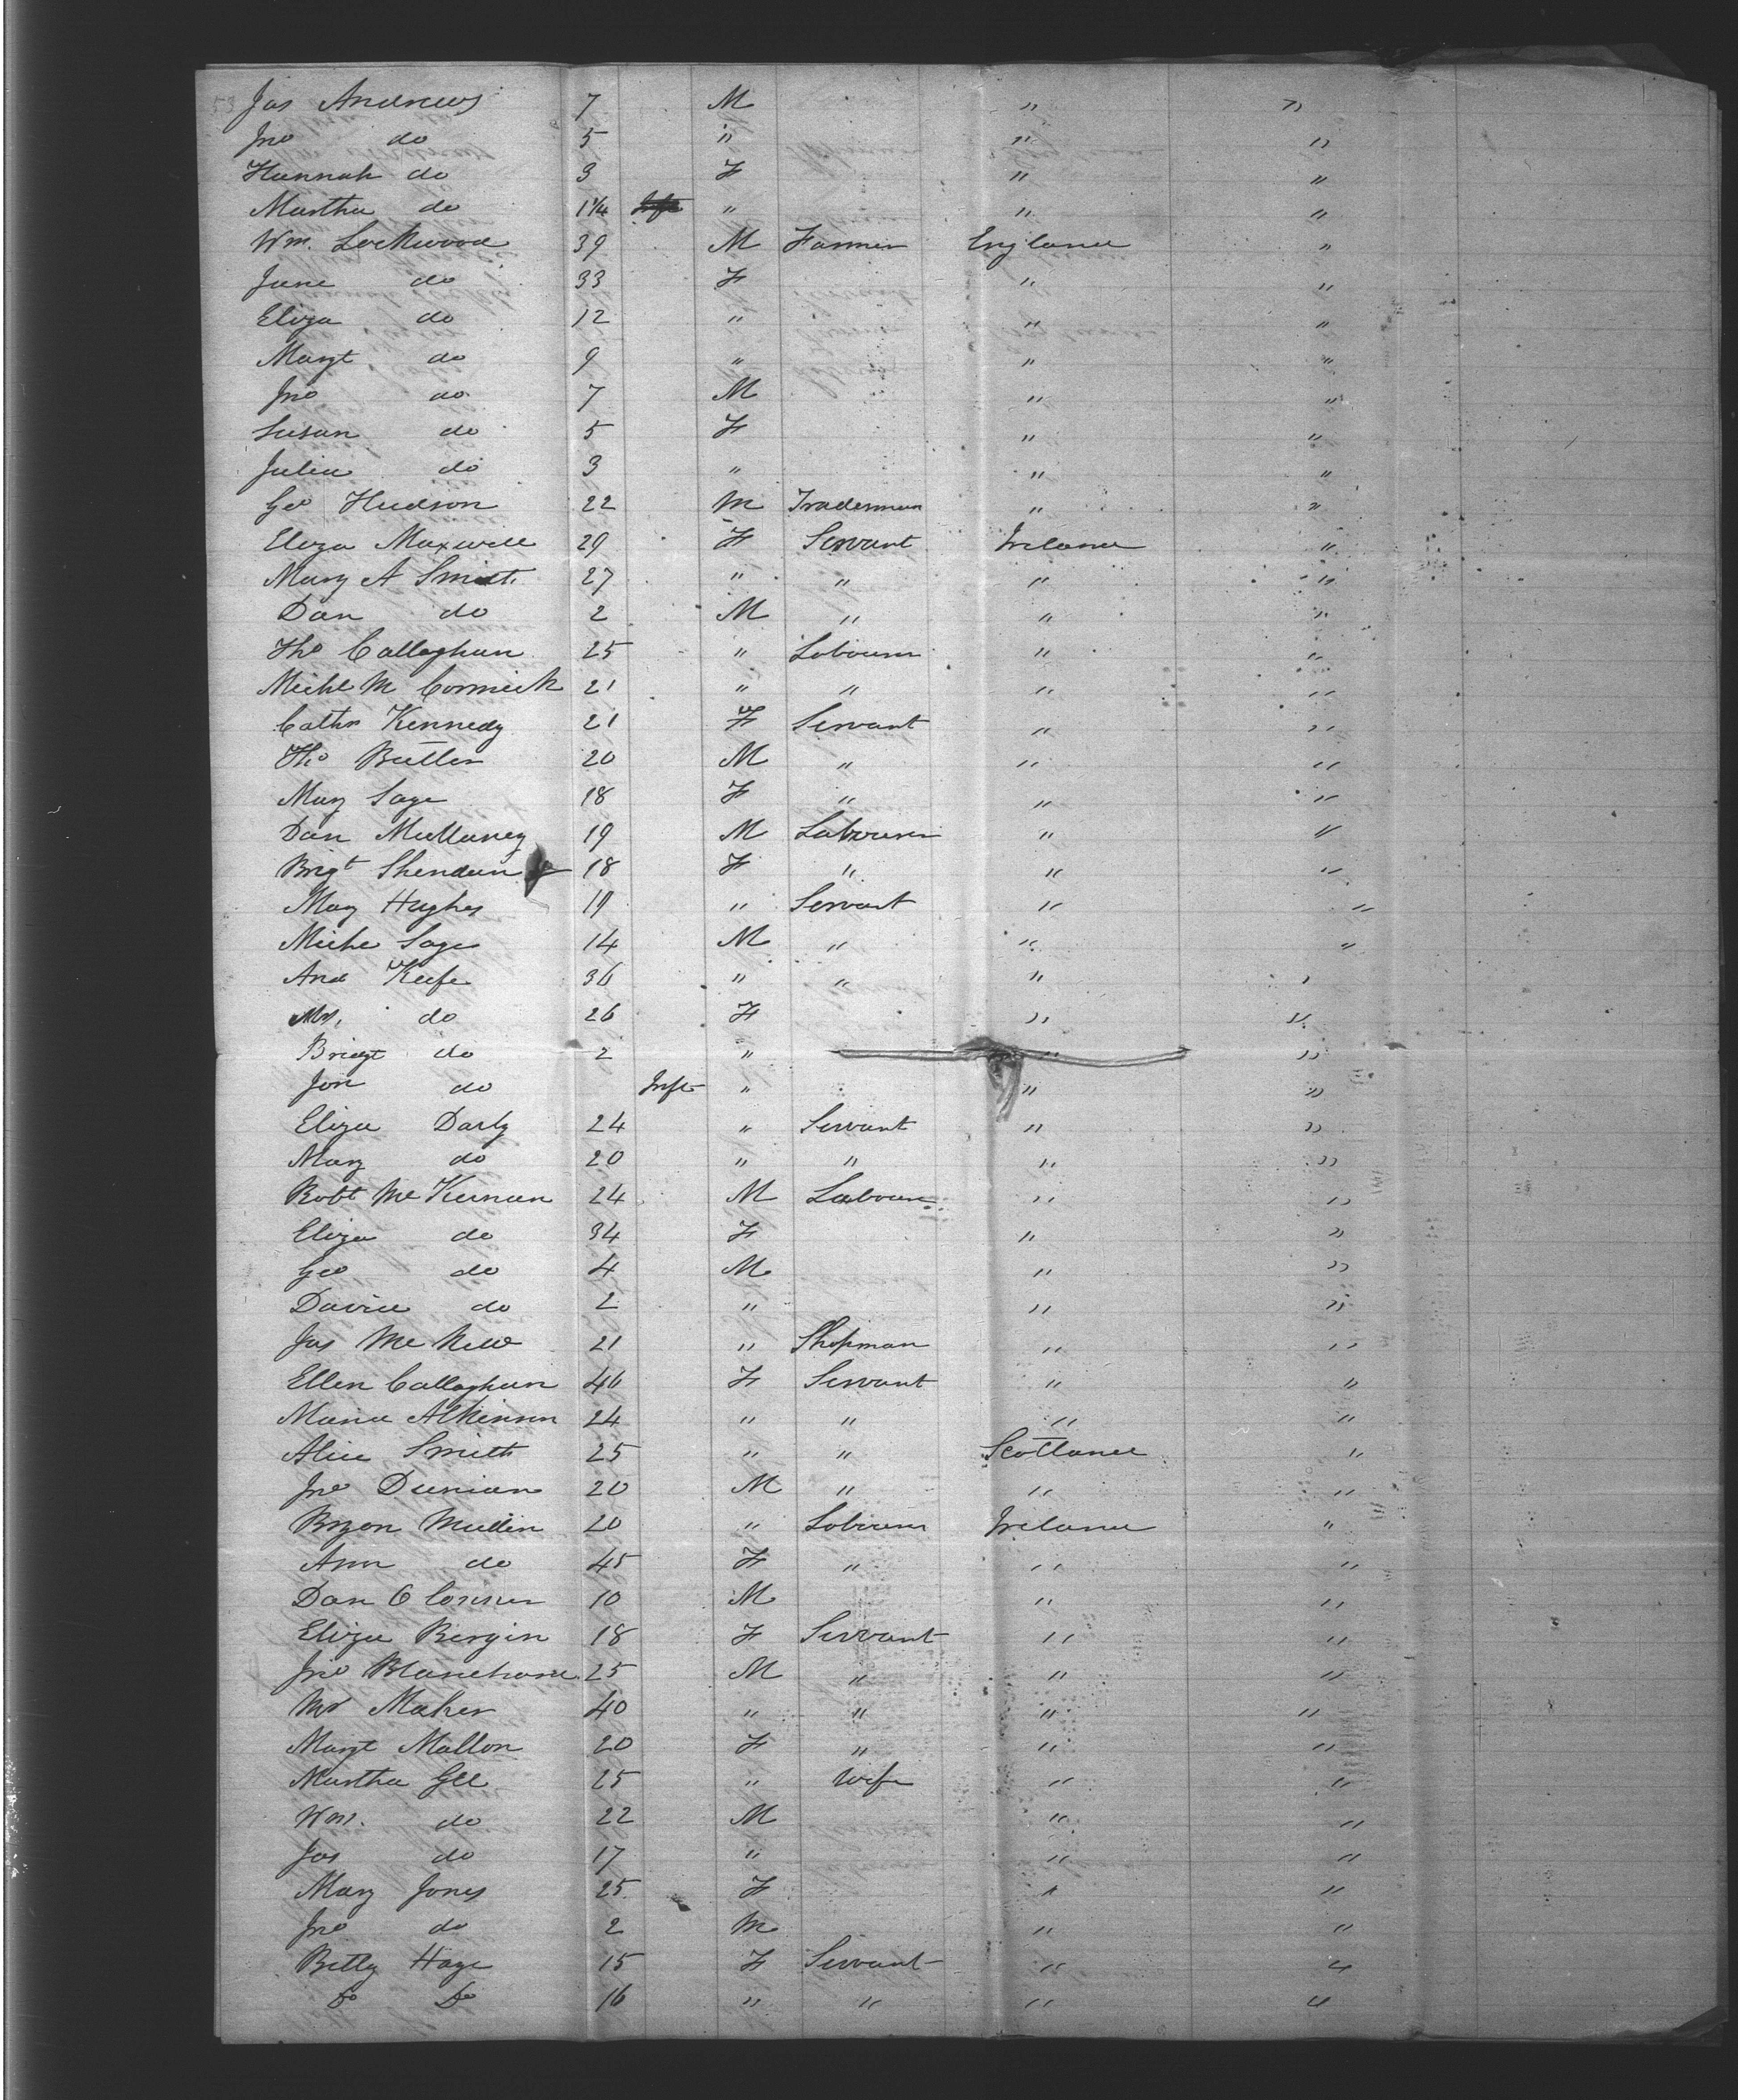 Jas Andrews 7 M " "
Jno do 5 " " "
Hannah do 3 F " "
Martha do 1 1/4 Inft " " "
Wm. Lockwood 39 M Farmer England "
Jane do 33 F " "
Eliza do 12 " " "
Margt do 9 " " "
Jno do 7 M " "
Susan do 5 F " "
Julia do 3 " " "
Geo Hudson 22 M Tradesman " "
Eliza Maxwell 29 F Servant Ireland "
Mary A Smith 27 " " " "
Dan do 2 M " " "
Tho Callaghan 25 " Labourer " "
Michl Mc Cormick 21 " " " "
Cathn Kennedy 21 F Servant " "
Tho Butler 20 M " " "
Mary Sage 18 F " " "
Dan Mullaney 19 M Labourer " "
Brigt 18 F " " "
Mary Hughes 19 " Servant " "
Miche Sage 14 M " " "
And Keefe 36 " " " "
Mrs. do 26 F " "
Bridgt do 2 " " "
Jon do Inft " " "
Eliza Darly 24 " Servant " "
Mary do 20 " " " "
Robt Mc Kernan 24 M Labourer " "
Eliza do 34 F " "
Geo do 4 M " "
David do 2 " " "
Jas 21 " Shopman " "
Ellen Callaghan 40 F Servant " "
Maria Atkinson 24 " " " "
Alice Smith 25 " " Scotland "
Jno 20 M " " "
Bryon Mullin 20 " Labourer Ireland "
Ann do 45 F " " "
Dan O Conner 10 M " "
Eliza Bergin 18 F Servant " "
Jno Blanchard 25 M " " "
Mr Maher 40 " " " "
Margt Mallon 20 F " " "
Martha Gll 25 " Wife " "
Wm. do 22 M " "
Jas do 17 " " "
Mary Jones 25 F " "
Jno do 2 M " "
Betty Haye 15 F Servant " "
Do Do 16 " " " "